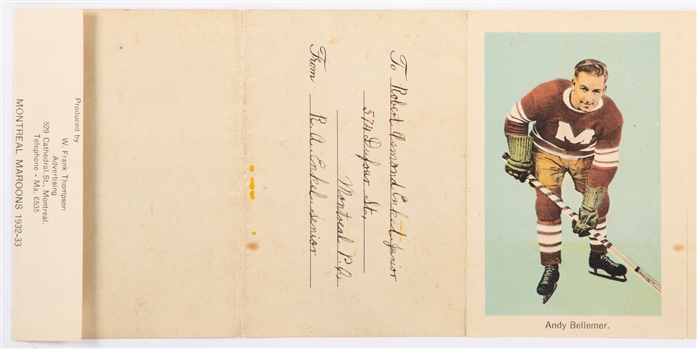 Produced by
W. Frank Thompson
Advertising
529 Cathedral St., Montreal.
Telephone - Ma. 6535
MONTREAL MAROONS 1932-33
To Robert Osmond Enkel junior
574 Dufour St,
Montreal P.Q.
From R. A. Enkel senior
M
Andy Bellemer.